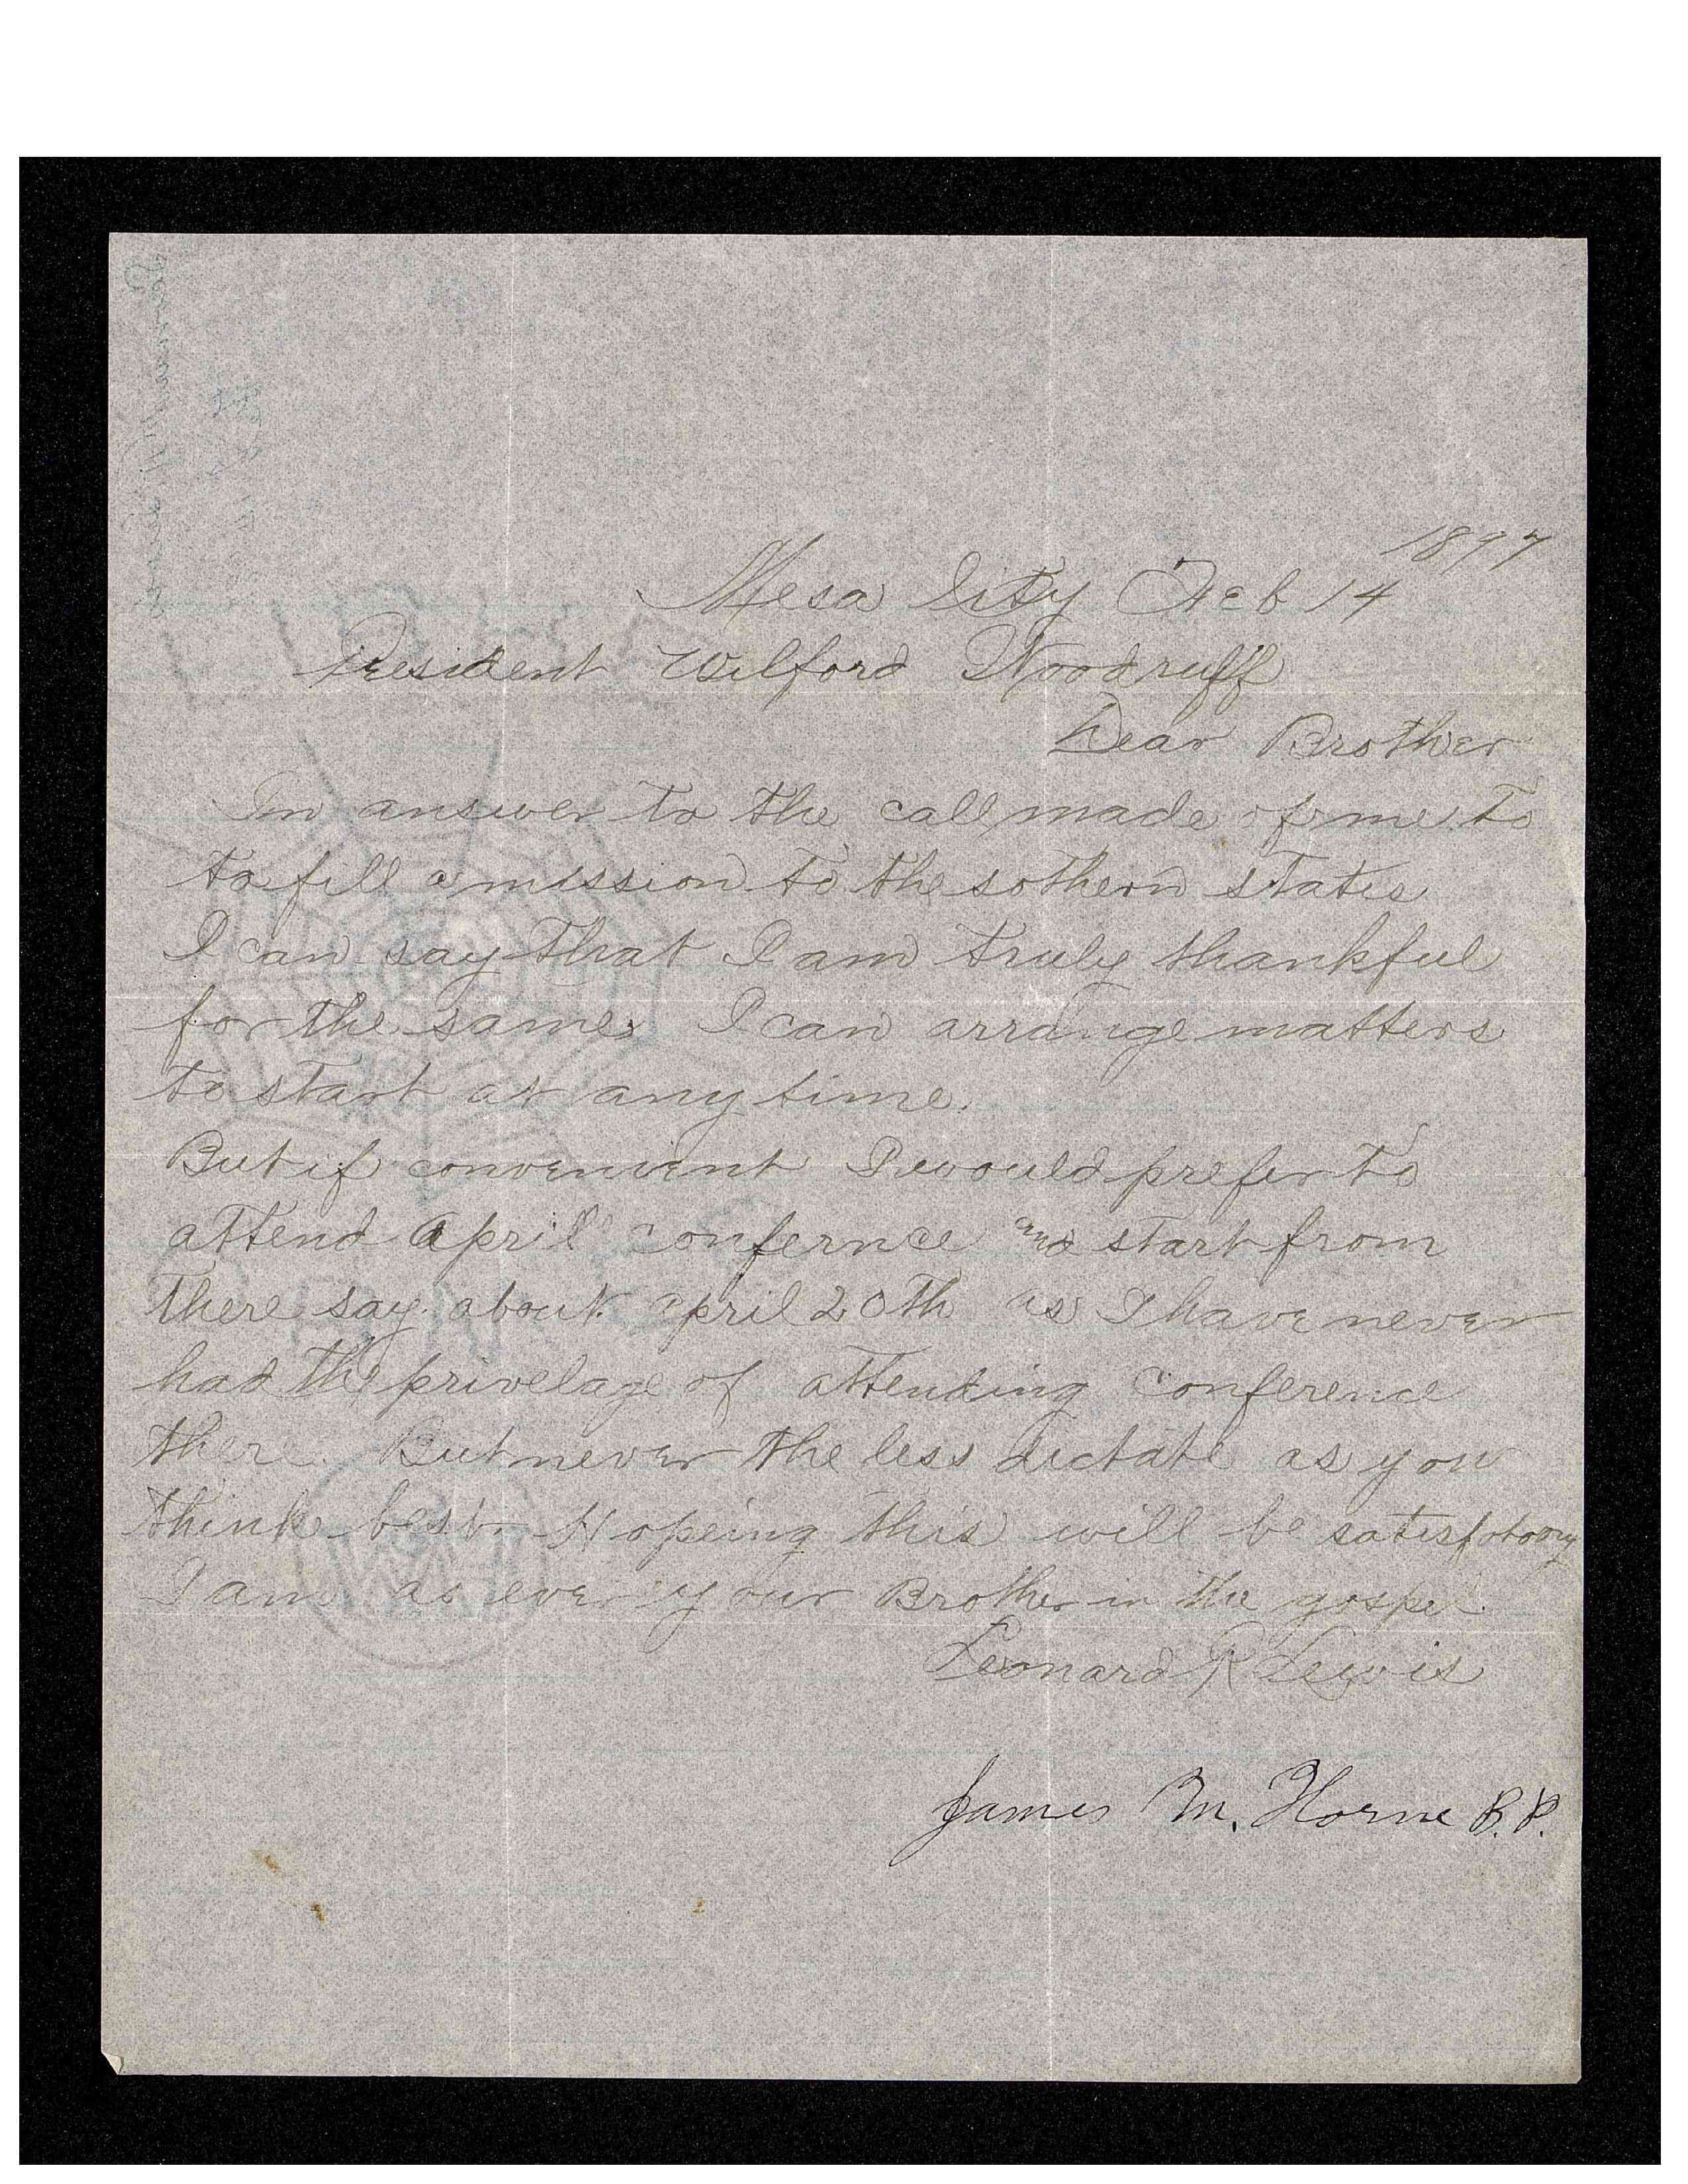 1897
Mesa City Feb 14
President Wilford Woodruff
Dear Brother
In answer to the call made of me to
to fill a mission to the sothern states
I can say that I am truly thankful
for the same. I can arrange matters
to start at any time.
But if convenient I would prefer to
attend April confernce and start from
there say about april 20th as I have never
had the privelage of attending conference
there. But never the less dictate as you
think best. Hopeing this will be satisfotory
I am as ever your Brother in the gospel.
Leonard R Lewis
James M. Horne B.P.